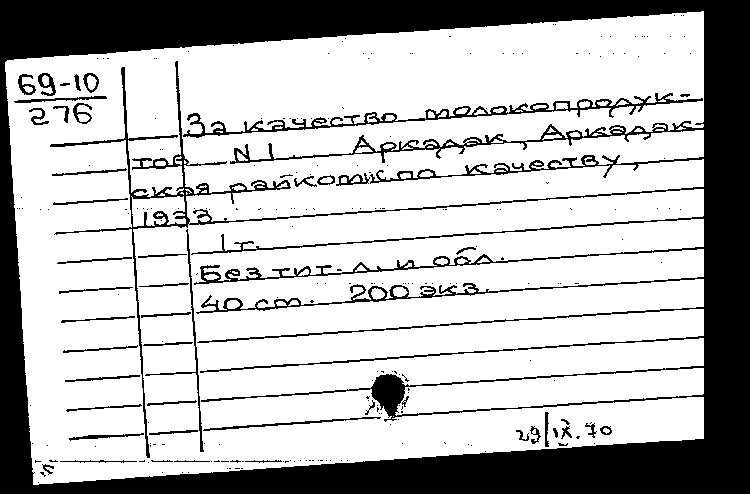 69-10
276
За качество молокопродук-
тов N 1. Аркадак, Аркадак-
ская райком.по качеству,
1933.
1 т.
Без тит. л. и обл.
40 ст. 200 экз.
29/IX.70